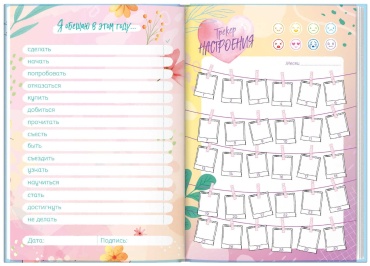 Я обещаю в этом году...
сделать
начать
попробовать
отказаться
купить
добиться
прочитать
съесть
быть
съездить
узнать
научиться
стать
достигнуть
не делать
Дата:
Подпись:
Трекер
НАСТРОЕНИЯ